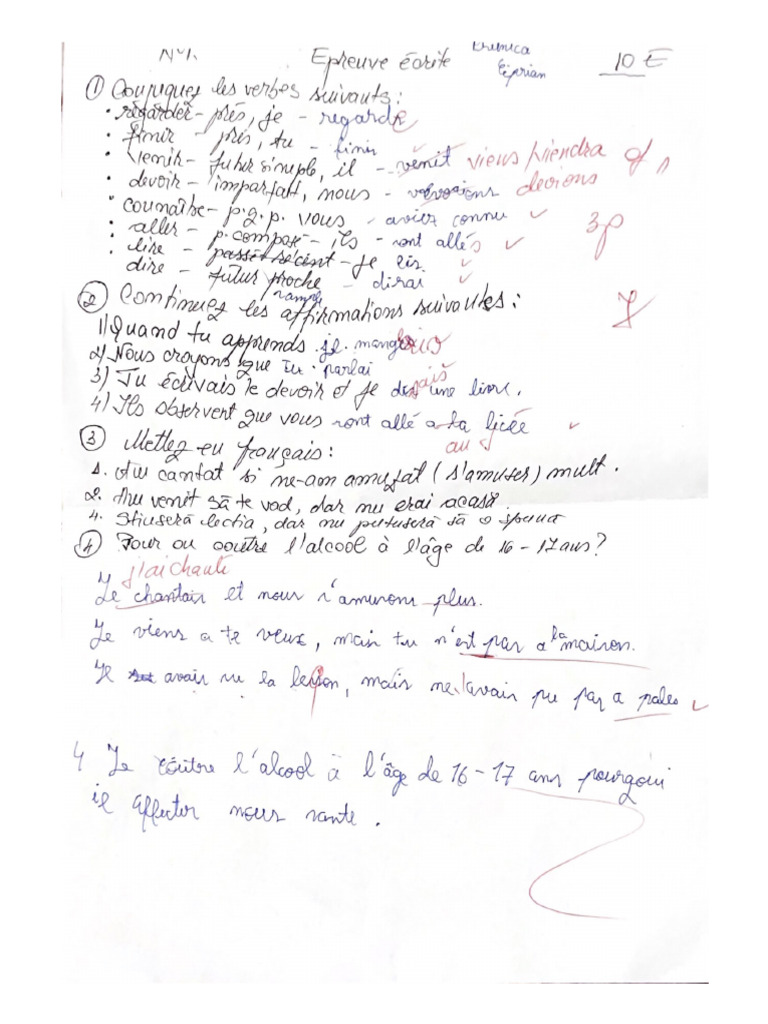 N°1. Epreuve écrite Ciprian 10 E
① Conjuguez les verbes suivants:
• regarder - prés, je - regarde
• finir - prés, tu - finir
• venir - futur simple, il - venit viens viendra
• devoir - imparfait, nous - devions
• connaître - p.q.p. vous - aviez connu
• aller - p. composé - ils - sont allés
• lire - passé récent - je lis
dire - futur proche - dirai
② Continuez les affirmations suivantes:
1) Quand tu apprends je mange
2) Nous croyons que tu parlai
3) Tu écrivais le devoir et je une livre.
4) Ils observent que vous sont allé a la licée
au
③ Mettez en français:
1. Am cantat si ne-am amuzat (s'amuser) mult.
2. Am venit să te vad, dar nu erai acasă.
4. Stiuseră lectia, dar nu putuseră să o spună
④ Pour ou contre l'alcool à l'âge de 16-17 ans?
j'ai chanté
Je chantais et nous s'amusons plus.
Je viens a te veux, mais tu n'est pas a la maison.
Je avais su la leçon, mais ne avais pu pas a
4 Je coûtre l'alcool à l'âge de 16-17 ans pourqoui
il affecter nous sante.